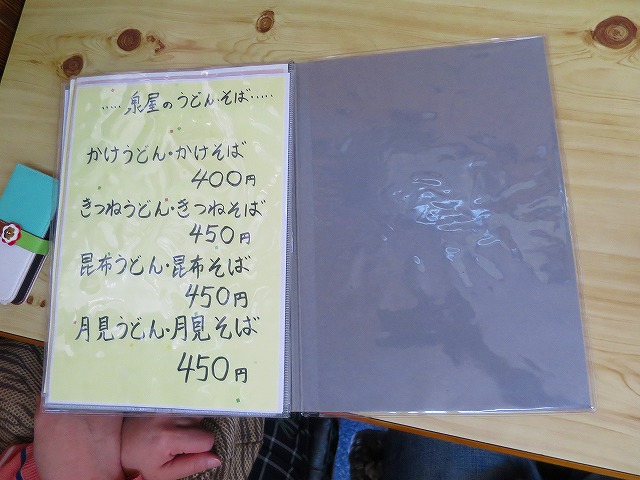 ・・・・・泉屋のうどん・そば・・・・・
かけうどん・かけそば
400円
きつねうどん・きつねそば
450円
昆布うどん・昆布そば
450円
月見うどん・月見そば
450円